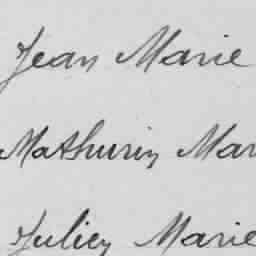 Jean Marie
Mathurin Mar
Julien Marie